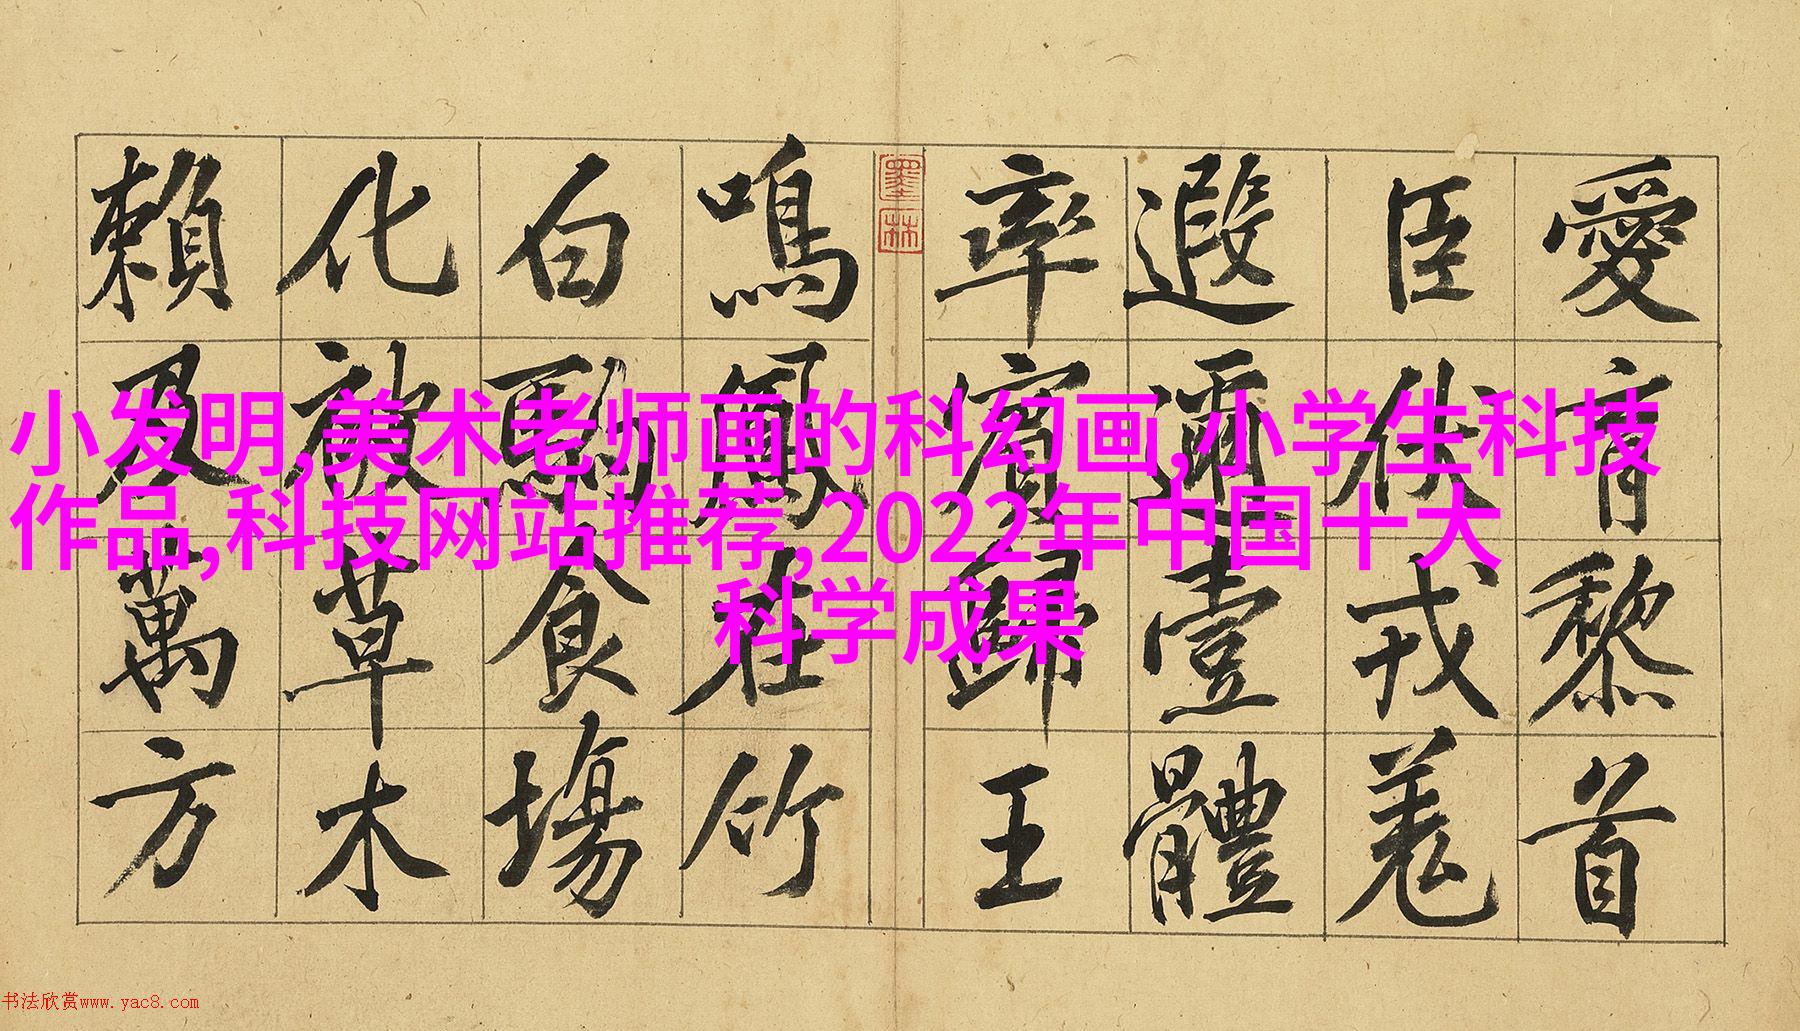 愛育黎首
臣伏戎羌
遐邇壹體
率賓歸王
墨林
鳴鳳在竹
白駒食場
化被草木
賴及萬方
小发明,美术老师画的科幻画,小学生科技
作品,科技网站推荐,2022年中国十大
科学成果
书法欣赏www.yac8.com